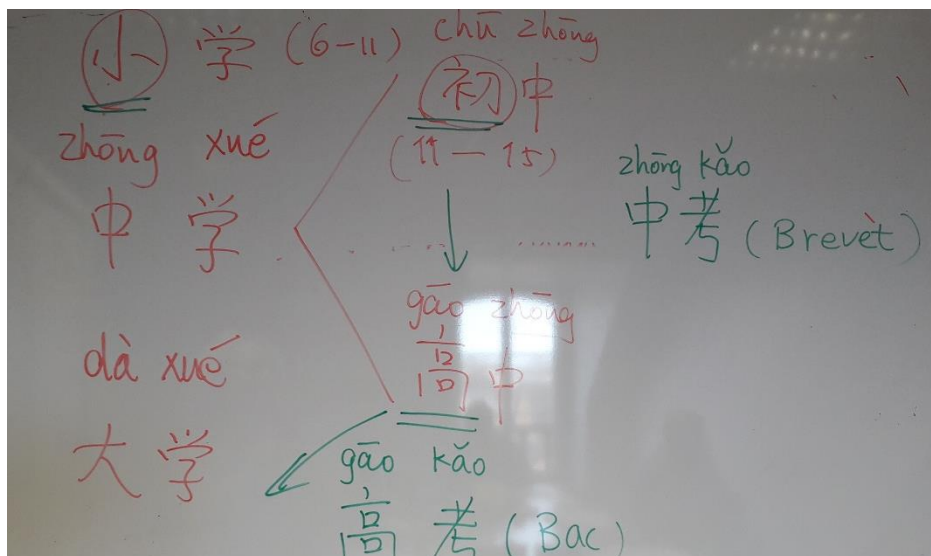 小学 (6-11)
zhōng xué
中学
dà xué
大学
chū zhōng
初中
(11-15)
gāo zhōng
高中
zhōng kǎo
中考 (Brevèt)
gāo kǎo
高考 (Bac)